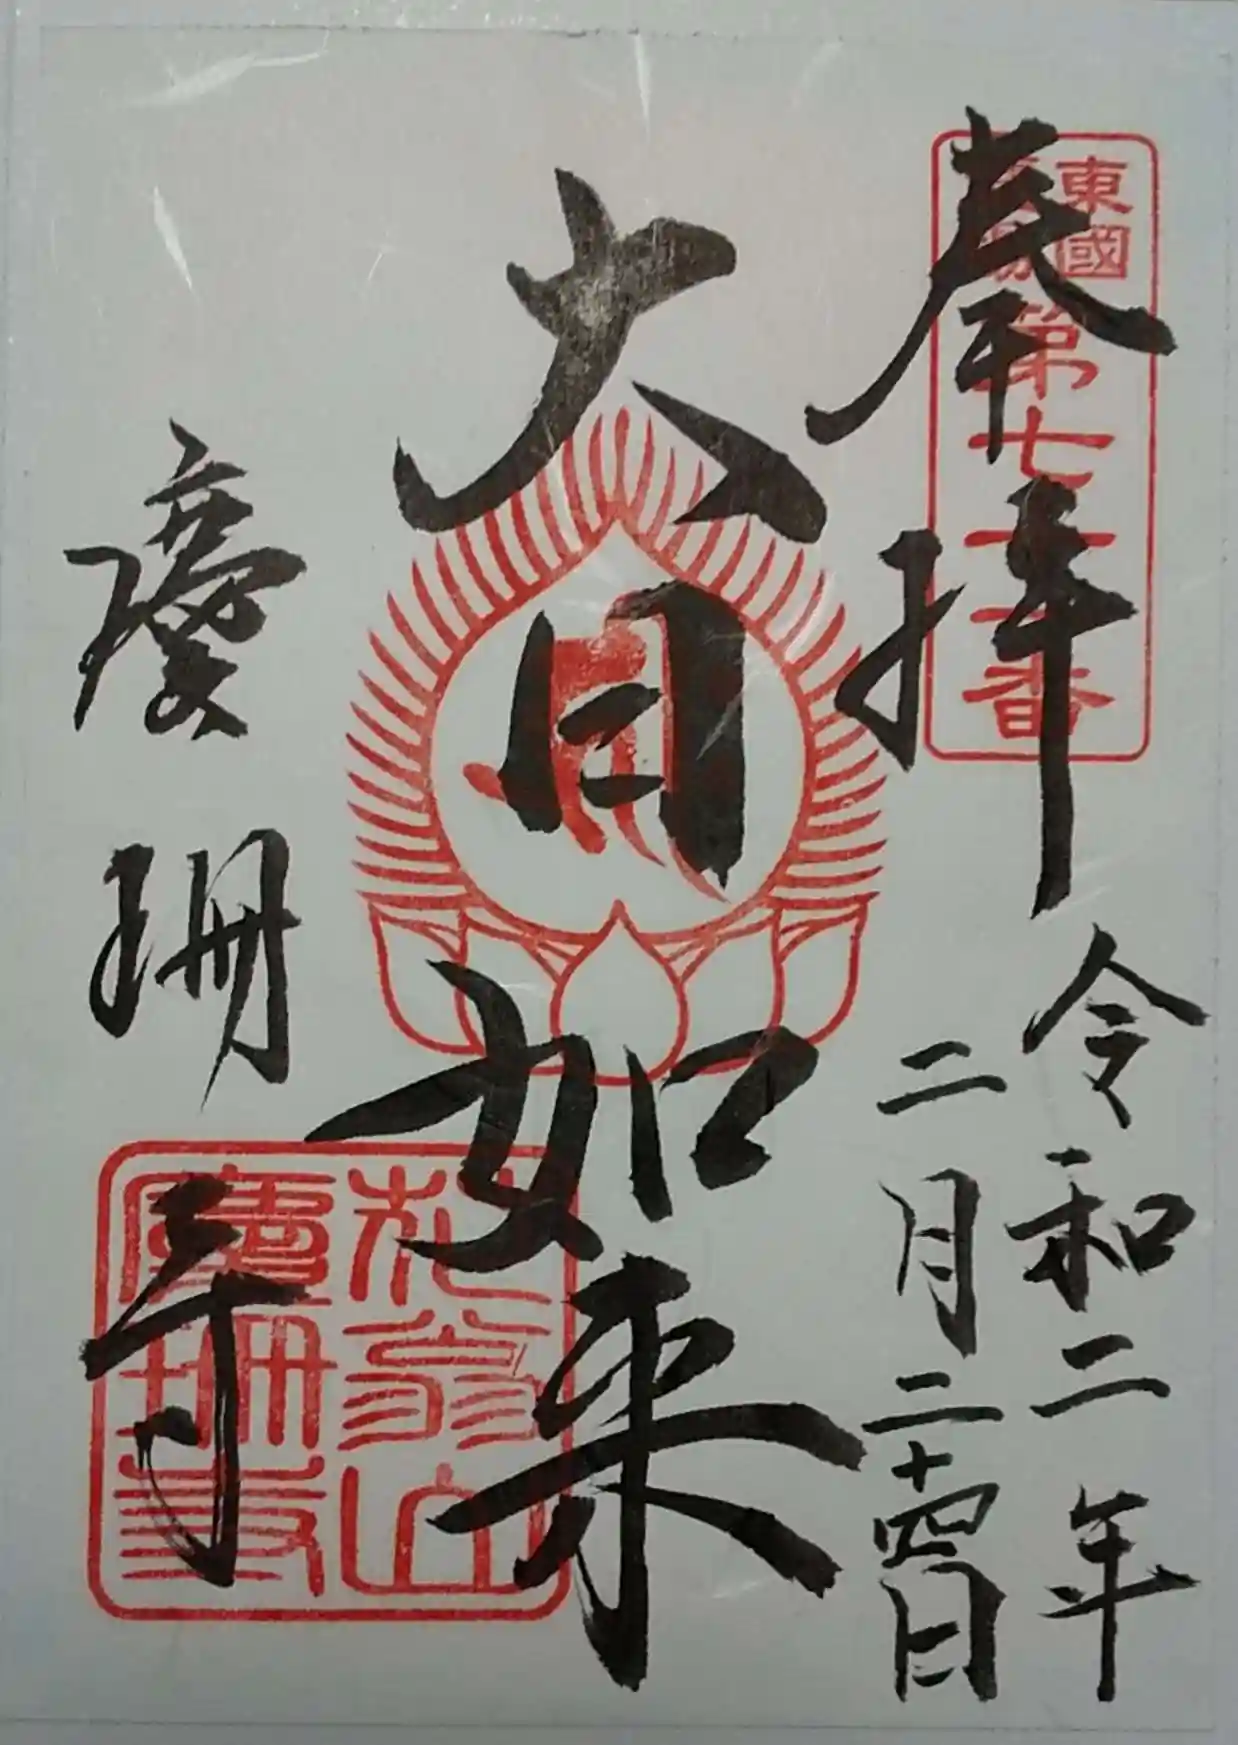 奉拝
東國
第七十一番
令和二年
二月二十四日
大日如来
慶珊寺
花翁山
慶珊寺